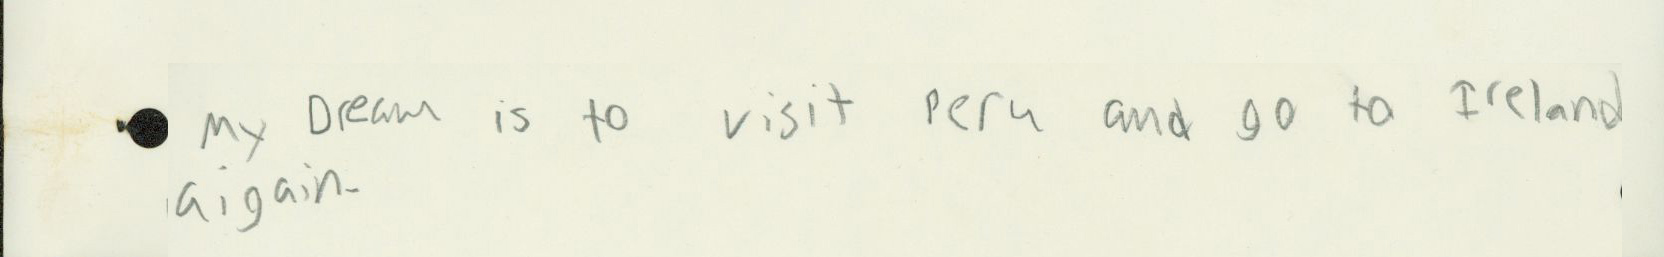 My Dream is to visit Peru and go to Ireland
aigain.